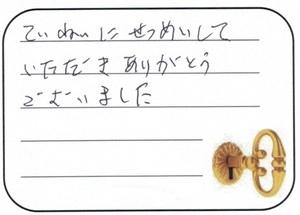 ていねいにせつめいして
いただきありがとう
ございました